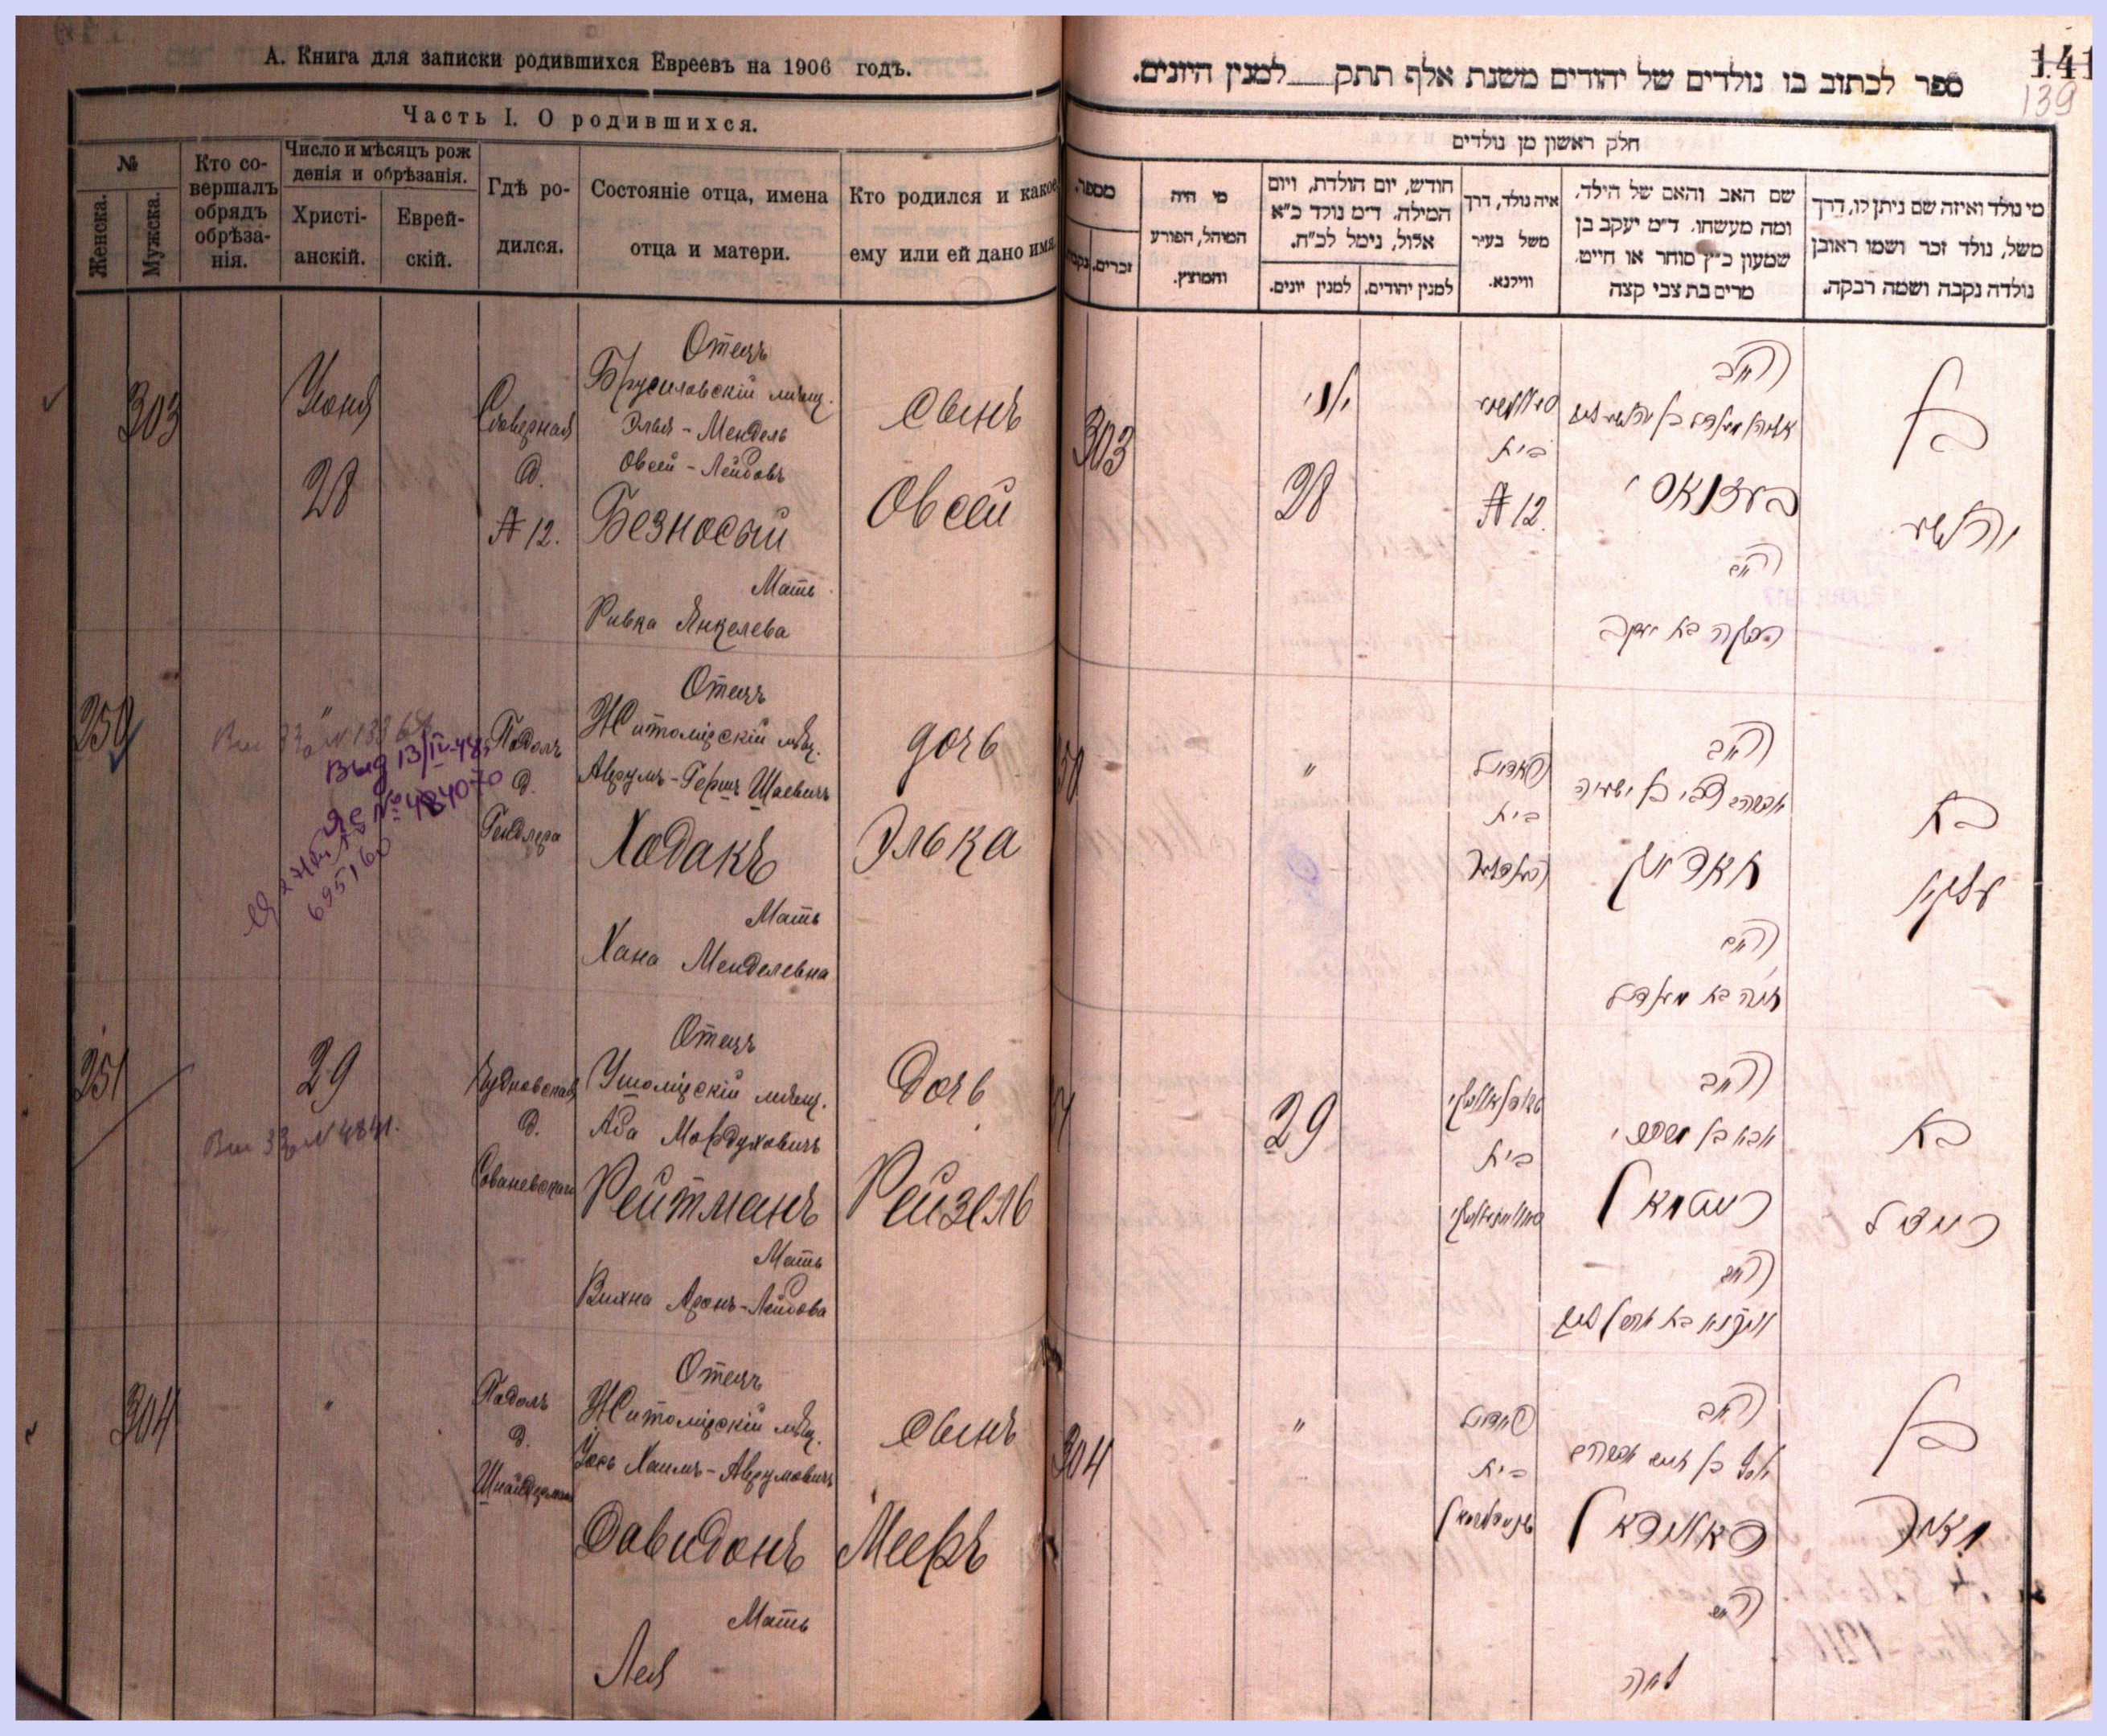 А. Книга для записки родившихся Евреевъ на 1906 годъ.
Часть I. О родившихся.
№
Женска.
Мужска.
Кто со-
вершалъ
обрядъ
обрѣза-
нія.
Число и мѣсяцъ рож
денія и обрѣзанія.
Христі-
анскій.
Еврей-
скій.
Гдѣ ро-
дился.
Состояніе отца, имена
отца и матери.
Кто родился и какое
ему или ей дано имя.
303
Іюня
28
Сѣверная
д.
№ 12.
Отецъ
Брусиловскій мѣщ.
Элья-Мендель
Овсей-Лейбовъ
Безносый
Мать
Ривка Янкелева
сынъ
Овсей
250
Выд 13/IV-48
ЯС № 484070
695160
Подолъ
д.
Гендлера
Отецъ
Житомірскій мѣщ.
Аврумъ-Гершъ Шаевичъ
Ходакъ
Мать
Хана Менделевна
дочь
Элька
251
29
Чудновская
д.
Отецъ
Ушомірскій мѣщ.
Аба Мордуховичъ
Рейтманъ
Мать
Вихна Аронъ-Лейбова
Дочь
Рейзель
304
"
Подолъ
д.
Шнайдермана
Отецъ
Житомірскій мѣщ.
Іось Хаимъ-Аврумовичъ
Давидонъ
Мать
Лея
сынъ
Мееръ
141
139
ספר לכתוב בו נולדים של יהודים משנת אלף תתק למנין היונים.
חלק ראשון מן נולדים
מספר.
נקבות
זכרים.
מי היה
המוהל, הפורע
והמוצץ.
חודש, יום הולדת, ויום
המילה. ד״מ נולד כ״א
אלול, נימל לכ״ח.
למנין יונים.
למנין יהודים.
איה נולד, דרך
משל בעיר
ווילנא.
שם האב והאם של הילד.
ומה מעשהו. ד״מ יעקב בן
שמעון כ״ץ סוחר או חייט.
מרים בת צבי קצה
מי נולד ואיזה שם ניתן לו, דרך
משל, נולד זכר ושמו ראובן
נולדה נקבה ושמה רבקה.
303
יוני
28
בית
№ 12.
האב
בעזנאסי
האם
רבקה בת יעקב
בן
"
בית
האב
אברהם צבי בן ישעיה
חאדאק
האם
חנה בת מענדיל
בת
עלקא
29
בית
האב
רייטמאן
האם
בת
רייזל
304
"
בית
האב
יוסף בן חיים אברהם
דאווידאן
האם
לאה
בן
מאיר